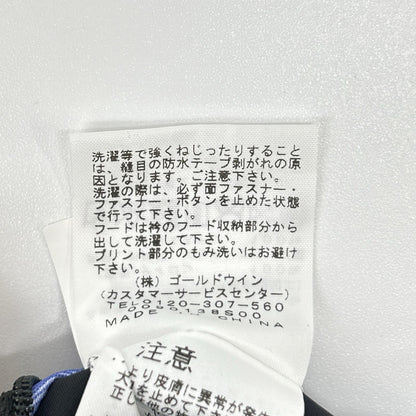 洗濯等で強くねじったりすること
は、縫目の防水テープ剥がれの原
因となります。ご注意下さい。
洗濯の際は、必ず面ファスナー・
ファスナー・ボタンを止めた状態
で行って下さい。
フードは衿のフード収納部分から
出して洗濯して下さい。
プリント部分のもみ洗いはお避け
下さい。
(株)ゴールドウイン
(カスタマーサービスセンター)
TEL0120-307-560
MADE IN CHINA
注意
より皮膚に異常が発
を止めて下さ